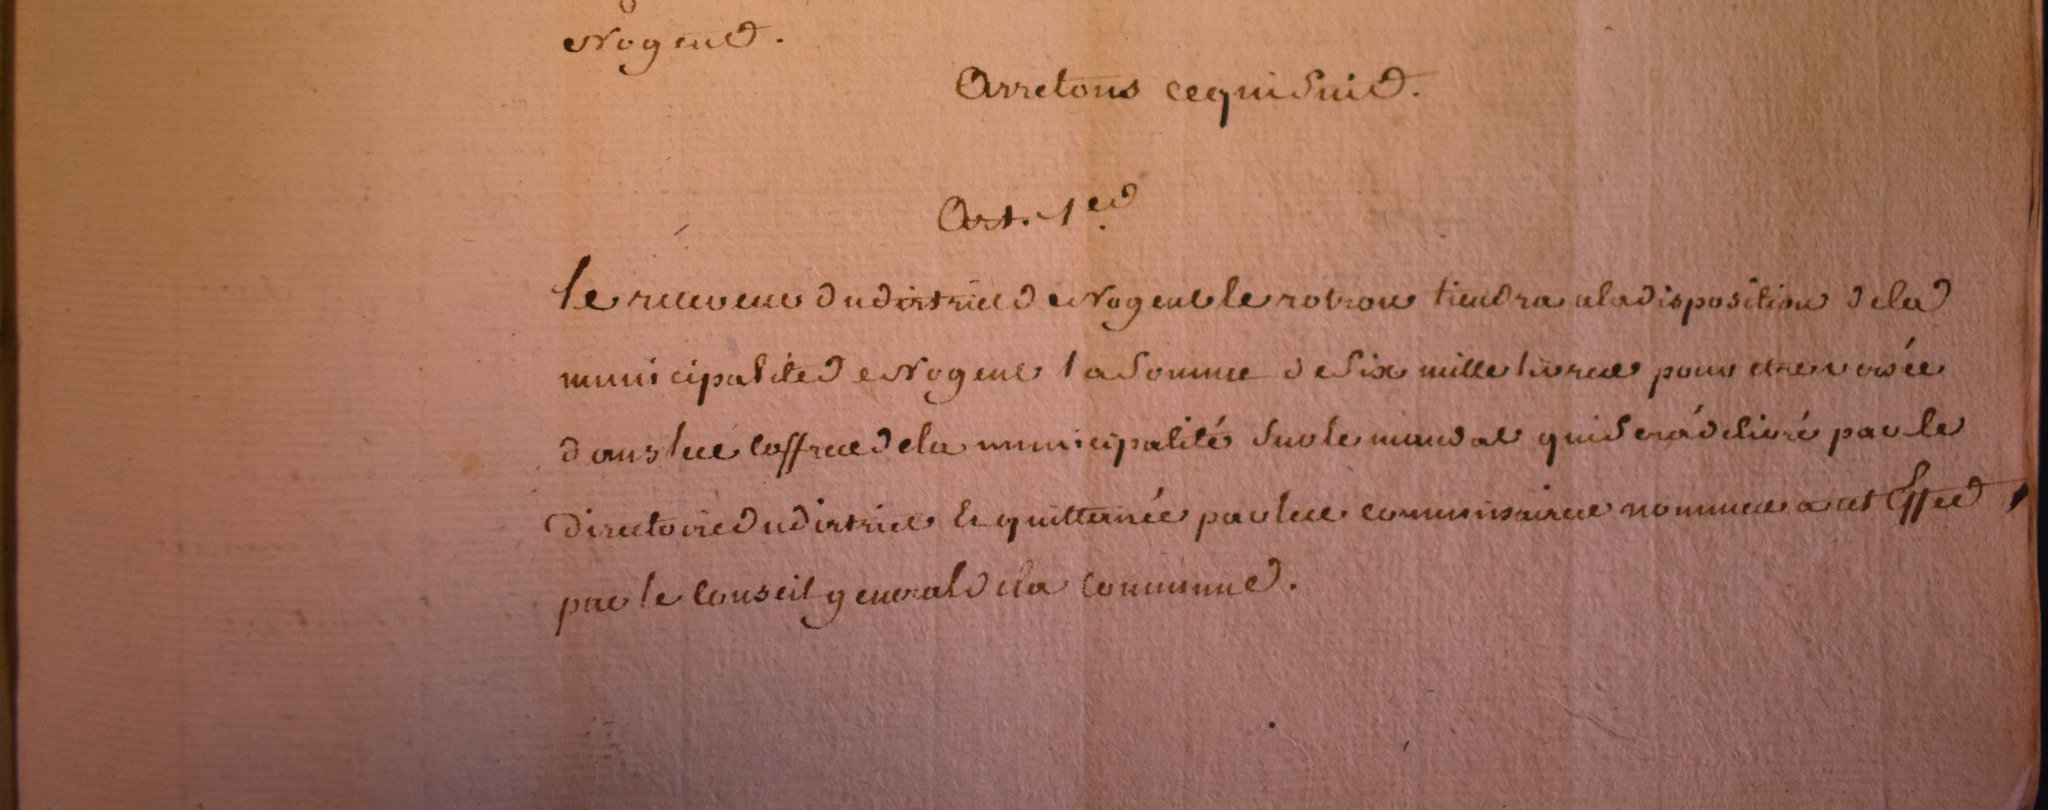 Nogent.
Arretons ce qui suit.
Art. 1er.
Le receveur du district de Nogent le rotrou tiendra a la disposition de la
municipalité de Nogent la somme de six mille livres pour etre versée
dans les coffres de la municipalité sur le mandat qui sera délivré par le
Directoire du district et quittancée par les commissaires nommes a cet Effet
par le Conseil general de la commune.